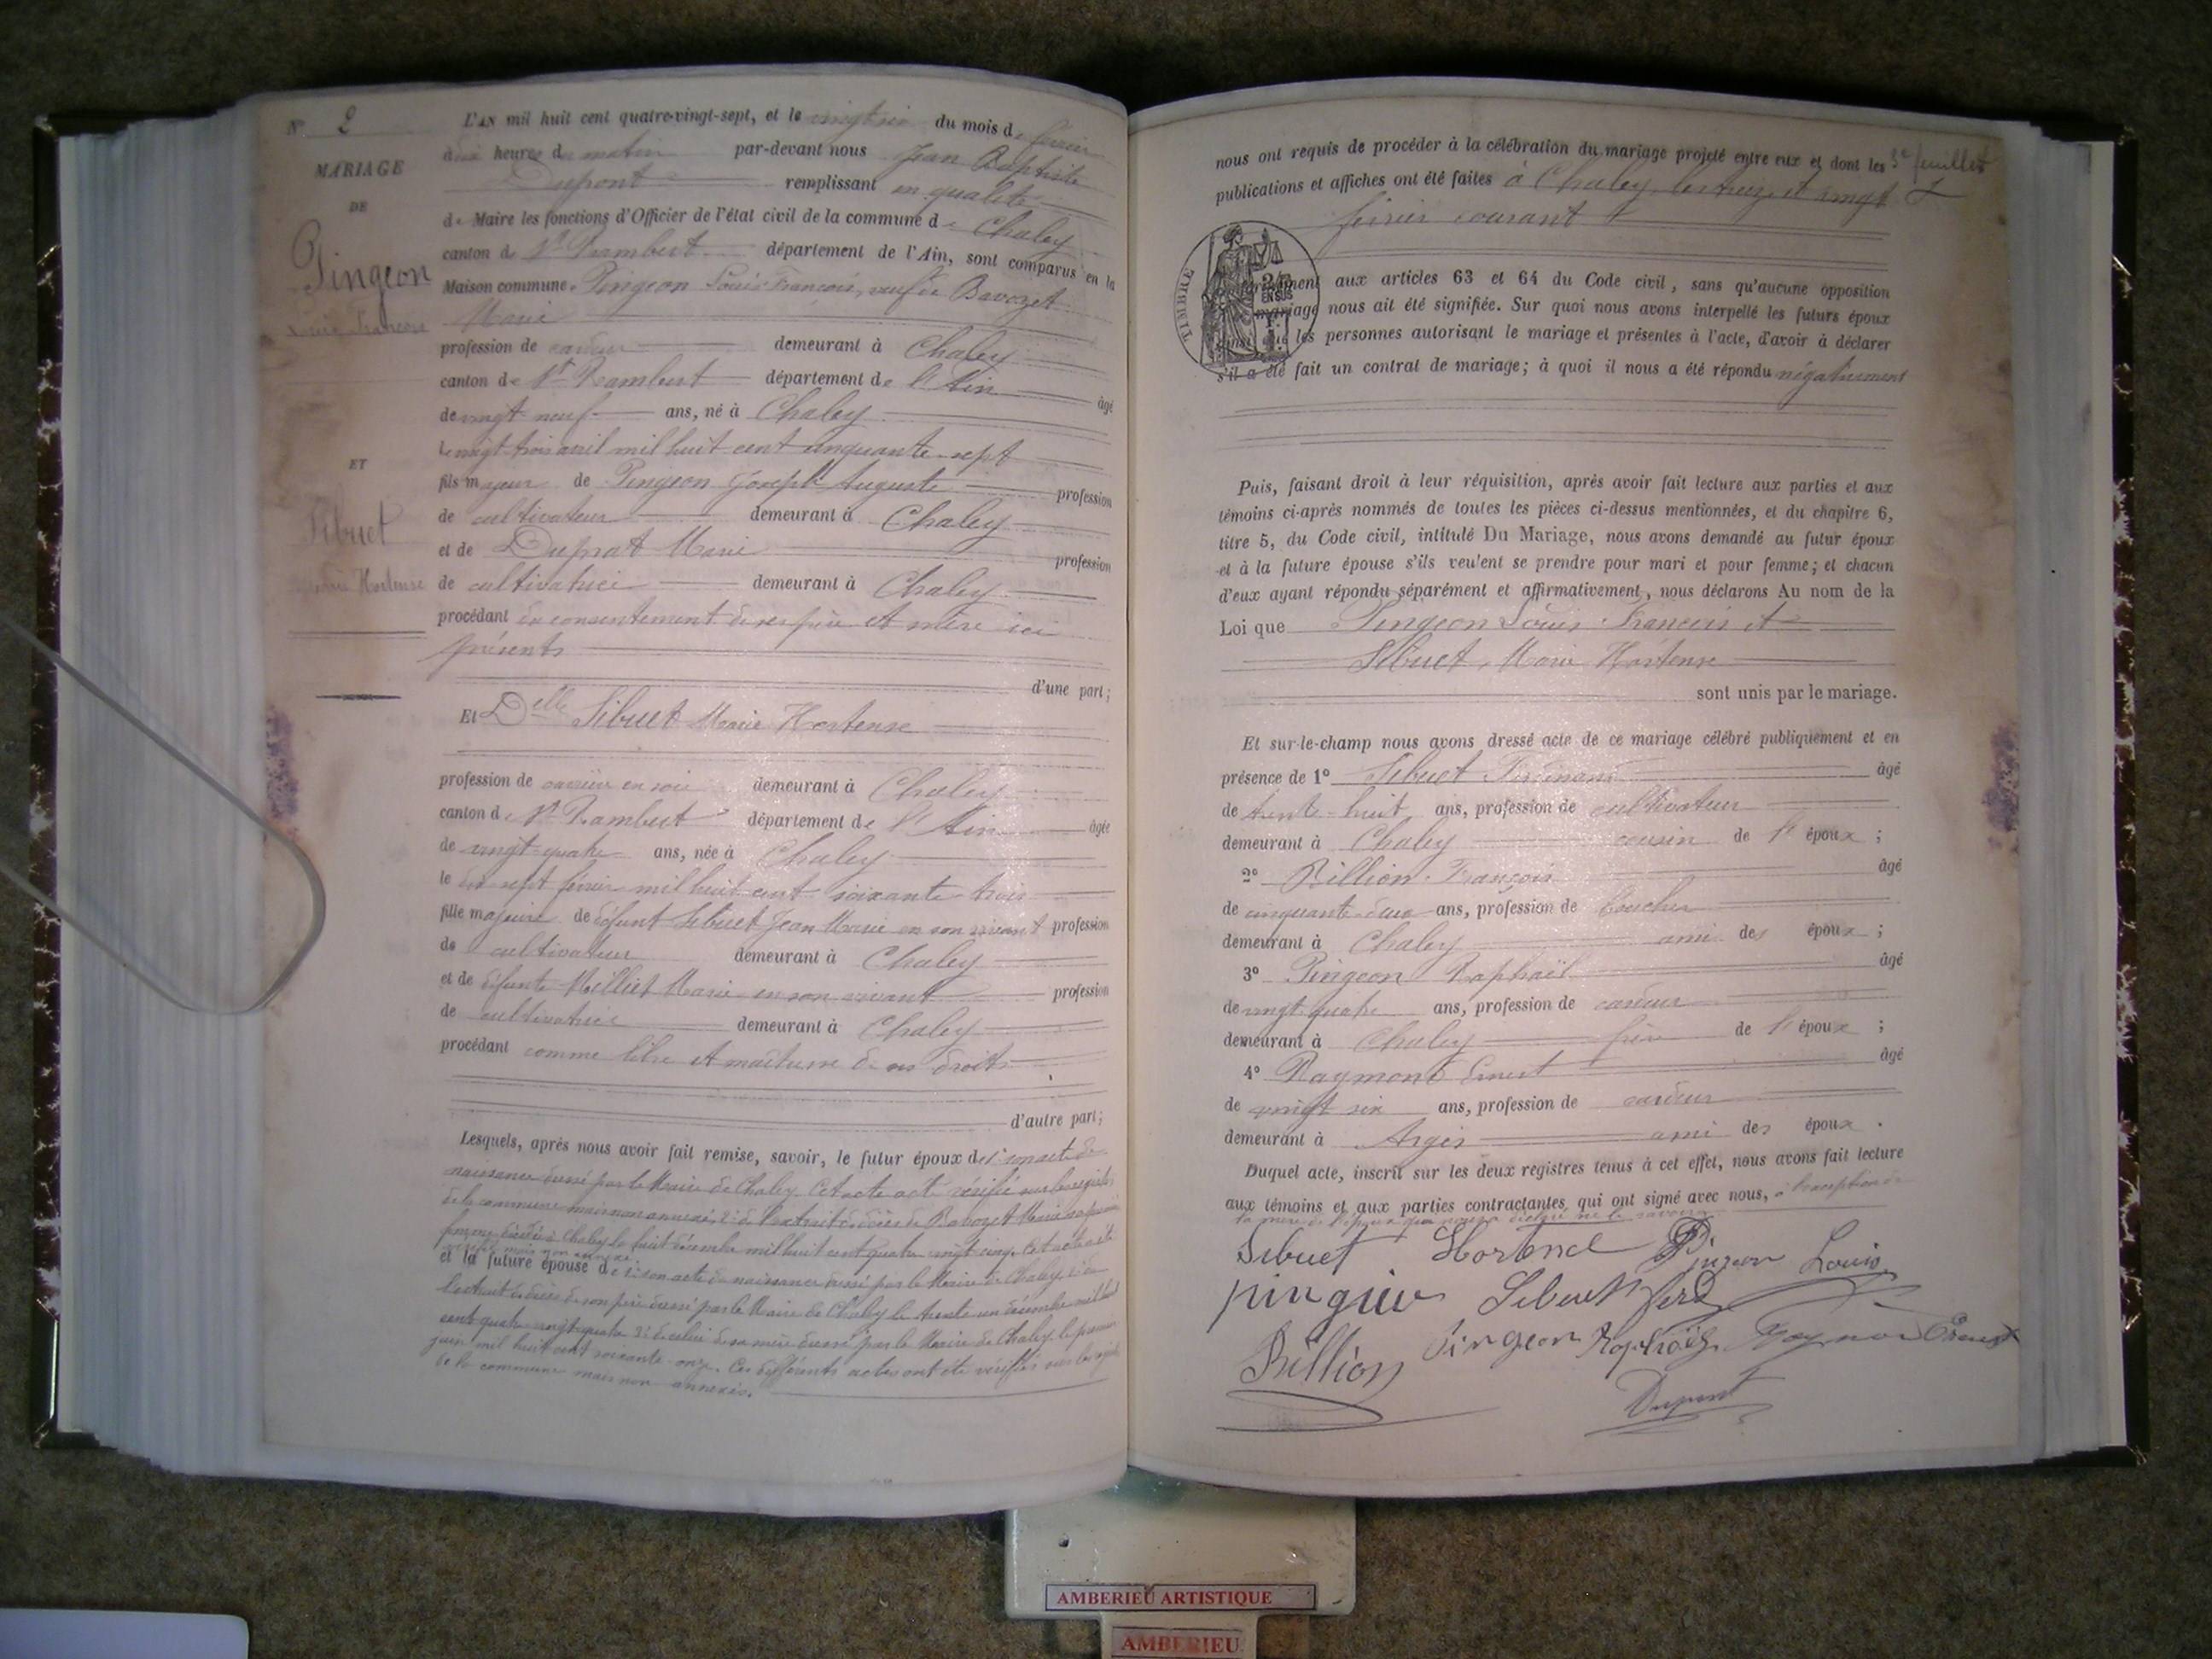 N° 2
MARIAGE
DE
Pingeon
Louis François
ET
Sibuet
Marie Hortense
L'AN mil huit cent quatre-vingt-sept, et le vingt six du mois de février
à dix heures du matin par-devant nous Jean Baptiste
Dupont remplissant en qualité
de Maire les fonctions d'Officier de l'état civil de la commune de Chaley
canton de St Rambert département de l'Ain, sont comparus en la
Maison commune, Pingeon Louis François, veuf de Bavozet
Marie
profession de cardeur demeurant à Chaley
canton de St Rambert département de l'Ain âgé
de vingt neuf ans, né à Chaley
le vingt trois avril mil huit cent cinquante sept
fils majeur de Pingeon Joseph Auguste profession
de cultivateur demeurant à Chaley
et de Duprat Marie profession
de cultivatrice demeurant à Chaley
procédant du consentement de ses père et mère ici
présents
d'une part;
Et Delle Sibuet Marie Hortense
profession de ouvrière en soie demeurant à Chaley
canton de St Rambert département de l'Ain âgée
de vingt quatre ans, née à Chaley
le dix sept février mil huit cent soixante trois
fille majeure de défunt Sibuet Jean Marie en son vivant profession
de cultivateur demeurant à Chaley
et de défunte Milliet Marie en son vivant profession
de cultivatrice demeurant à Chaley
procédant comme libre et maîtresse de ses droits
d'autre part;
Lesquels, après nous avoir fait remise, savoir, le futur époux de 1° son acte de
naissance dressé par le Maire de Chaley. Cet acte a été vérifié sur les registres
de la commune mais non annexé, 2° de l'extrait de décès de Bavozet Marie sa première
femme décédée à Chaley le huit décembre mil huit cent quatre vingt cinq. Cet acte a été
vérifié mais non annexé
et la future épouse de 1° son acte de naissance dressé par le Maire de Chaley, 2° de
l'extrait de décès de son père dressé par le Maire de Chaley le trente un décembre mil huit
cent quatre vingt quatre 3° de celui de sa mère dressé par le Maire de Chaley le premier
juin mil huit cent soixante onze. Ces différents actes ont été vérifiés sur les registres
de la commune mais non annexés.
3e feuillet
nous ont requis de procéder à la célébration du mariage projeté entre eux et dont les
publications et affiches ont été faites à Chaley, les treize et vingt
février courant
TIMBRE
2/10 EN SUS
aux articles 63 et 64 du Code civil, sans qu'aucune opposition
mariage nous ait été signifiée. Sur quoi nous avons interpellé les futurs époux
ainsi que les personnes autorisant le mariage et présentes à l'acte, d'avoir à déclarer
s'il a été fait un contrat de mariage; à quoi il nous a été répondu négativement
Puis, faisant droit à leur réquisition, après avoir fait lecture aux parties et aux
témoins ci-après nommés de toutes les pièces ci-dessus mentionnées, et du chapitre 6,
titre 5, du Code civil, intitulé Du Mariage, nous avons demandé au futur époux
et à la future épouse s'ils veulent se prendre pour mari et pour femme; et chacun
d'eux ayant répondu séparément et affirmativement, nous déclarons Au nom de la
Loi que Pingeon Louis François et
Sibuet Marie Hortense
sont unis par le mariage.
Et sur-le-champ nous avons dressé acte de ce mariage célébré publiquement et en
présence de 1° Sibuet Ferdinand âgé
de trente-huit ans, profession de cultivateur
demeurant à Chaley cousin de l'épouse;
2° Billion François âgé
de cinquante deux ans, profession de boucher
demeurant à Chaley ami des époux;
3° Pingeon Raphaël âgé
de vingt quatre ans, profession de cardeur
demeurant à Chaley frère de l'époux;
4° Raymond Ernest âgé
de vingt six ans, profession de cardeur
demeurant à Argis ami des époux.
Duquel acte, inscrit sur les deux registres tenus à cet effet, nous avons fait lecture
aux témoins et aux parties contractantes qui ont signé avec nous, à l'exception de
la mère de l'époux qui nous a déclaré ne le savoir
Sibuet Hortense Pingeon Louis
pingeon Sibuet Ferd
Billion Pingeon Raphaël Raymond Ernest
Dupont
AMBERIEU ARTISTIQUE
AMBERIEU